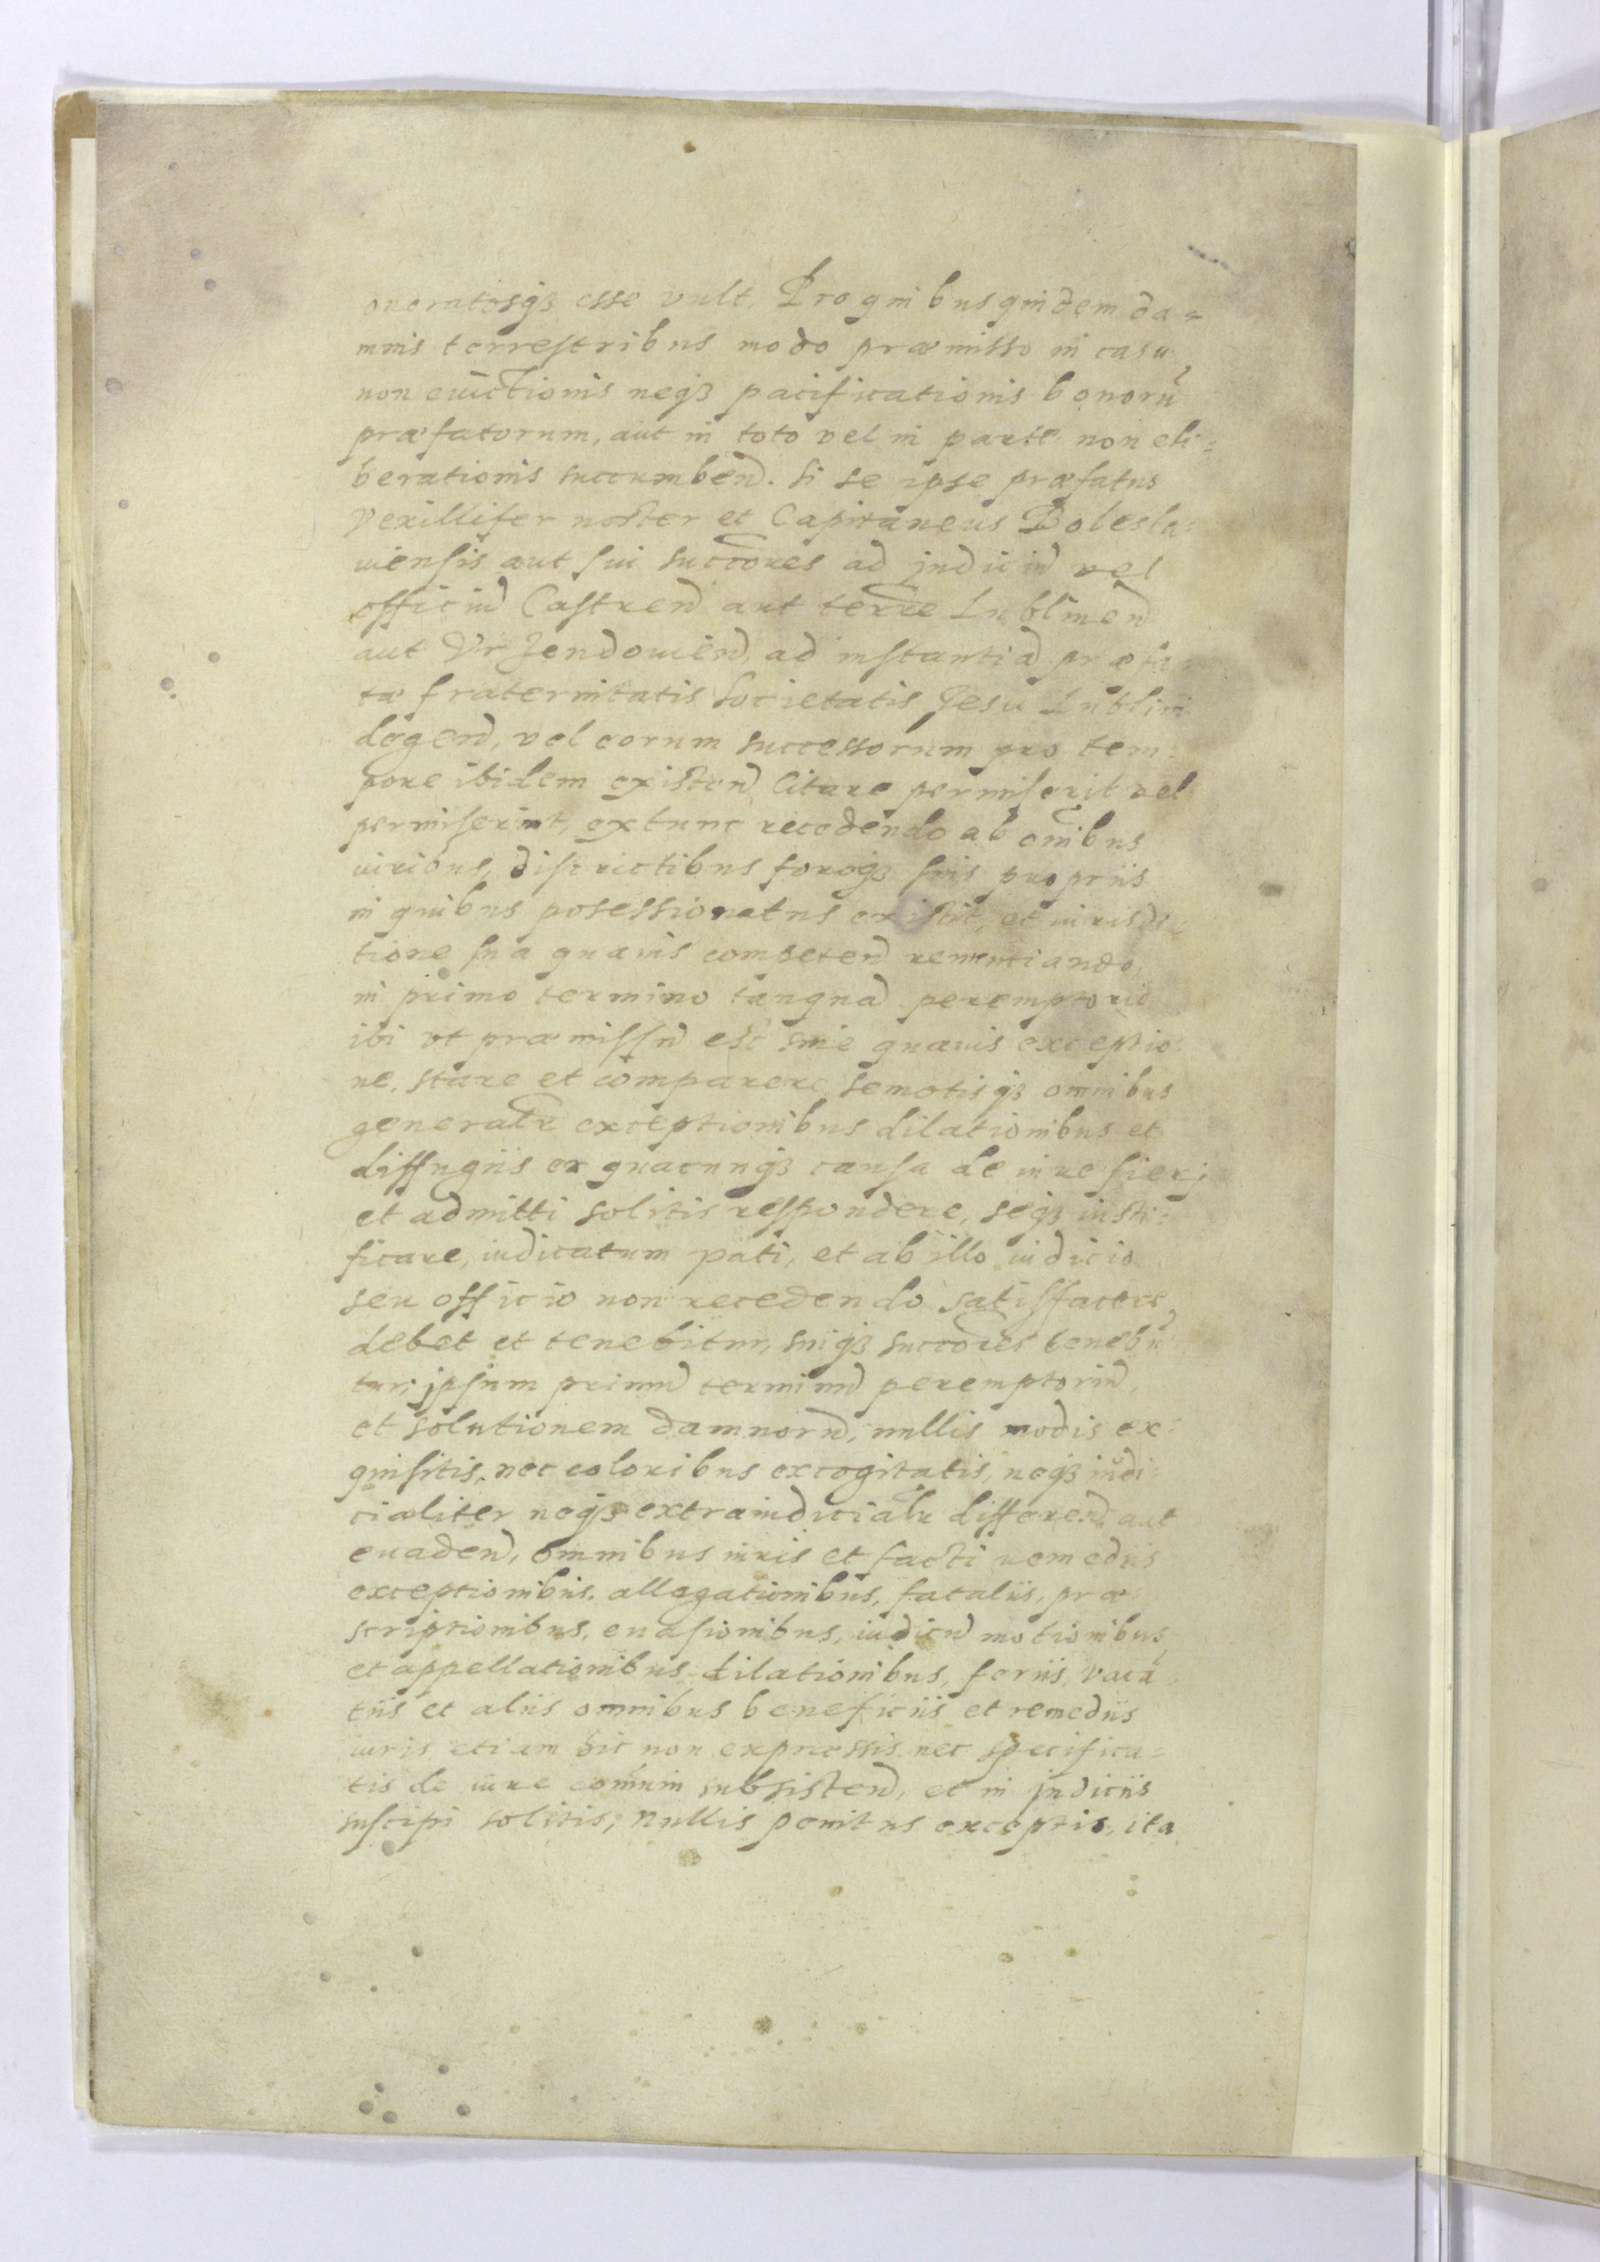 oneratosqꝫ esse vult. Pro quibus quidem da=
mnis terrestribus modo præmisso in casu
non euictionis neqꝫ pacificationis bonorū
præfatorum, aut in toto vel in parte non eli=
berationis succumbend. Si se ipse præfatus
Vexillifer noster et Capitaneus Bolesla=
uiensis aut sui succores ad judiciū vel
officiū Castren̄ aut terre Lublinen̄
aut Vrzendouien̄, ad instantiā præfa=
tæ fraternitatis Societatis Jesu Lublini
degen̄, vel eorum successorum pro tem=
pore ibidem existen̄ citare permiserit vel
permiserint, extunc recedendo ab oñibus
iuribus, districtibus foroqꝫ suis propriis
in quibus posessionatus existit, et iurisdi=
tione sua quauis competen̄ renuntiando,
in primo termino tanquā peremptorio
ibi vt præmissū est sine quauis exceptio
ne, stare et comparere, semotisqꝫ omnibus
generalr exceptionibus dilationibus et
diffugiis ex quacunqꝫ causa de iure fierj
et admitti solitis respondere, seqꝫ iusti=
ficare, iudicatum pati, et ab illo iudicio
seu officio non recedendo satisfacere
debet et tenebitur, suiqꝫ succores tenebū
tur, jpsum primū terminū peremptoriū,
et solutionem damnorū, nullis modis ex=
quisitis, nec coloribus excogitatis, neqꝫ iudi=
cialiter neqꝫ extraiudicialr differen̄ aut
euaden̄, omnibus iuris et facti remediis
exceptionibus, allegationibus, fataliis, præ=
scriptionibus, euasionibus, iudicū motionibus
et appellationibus dilationibus, feriis, vacā
tiis et aliis omnibus beneficiis et remediis
iuris etiam hic non expressis nec specifica=
tis de iure com̄uni subsisten̄, et in judiciis
suscipi solitis; nullis penitus exceptis, ita